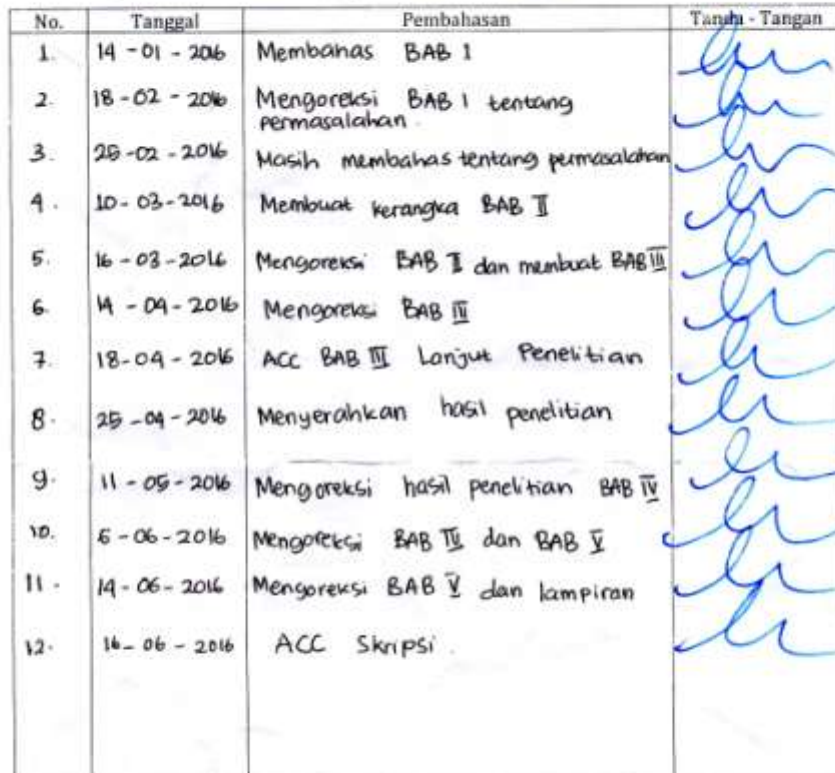 No. Tanggal Pembahasan Tanda - Tangan
1. 14 - 01 - 2016 Membahas BAB 1
2. 18 - 02 - 2016 Mengoreksi BAB 1 tentang
permasalahan.
3. 25 - 02 - 2016 Masih membahas tentang permasalahan
4. 10 - 03 - 2016 Membuat kerangka BAB II
5. 16 - 03 - 2016 Mengoreksi BAB II dan membuat BAB III
6. 14 - 04 - 2016 Mengoreksi BAB IV
7. 18 - 04 - 2016 ACC BAB III Lanjut Penelitian
8. 25 - 04 - 2016 Menyerahkan hasil penelitian
9. 11 - 05 - 2016 Mengoreksi hasil penelitian BAB IV
10. 6 - 06 - 2016 Mengoreksi BAB IV dan BAB V
11. 14 - 06 - 2016 Mengoreksi BAB V dan lampiran
12. 16 - 06 - 2016 ACC Skripsi.